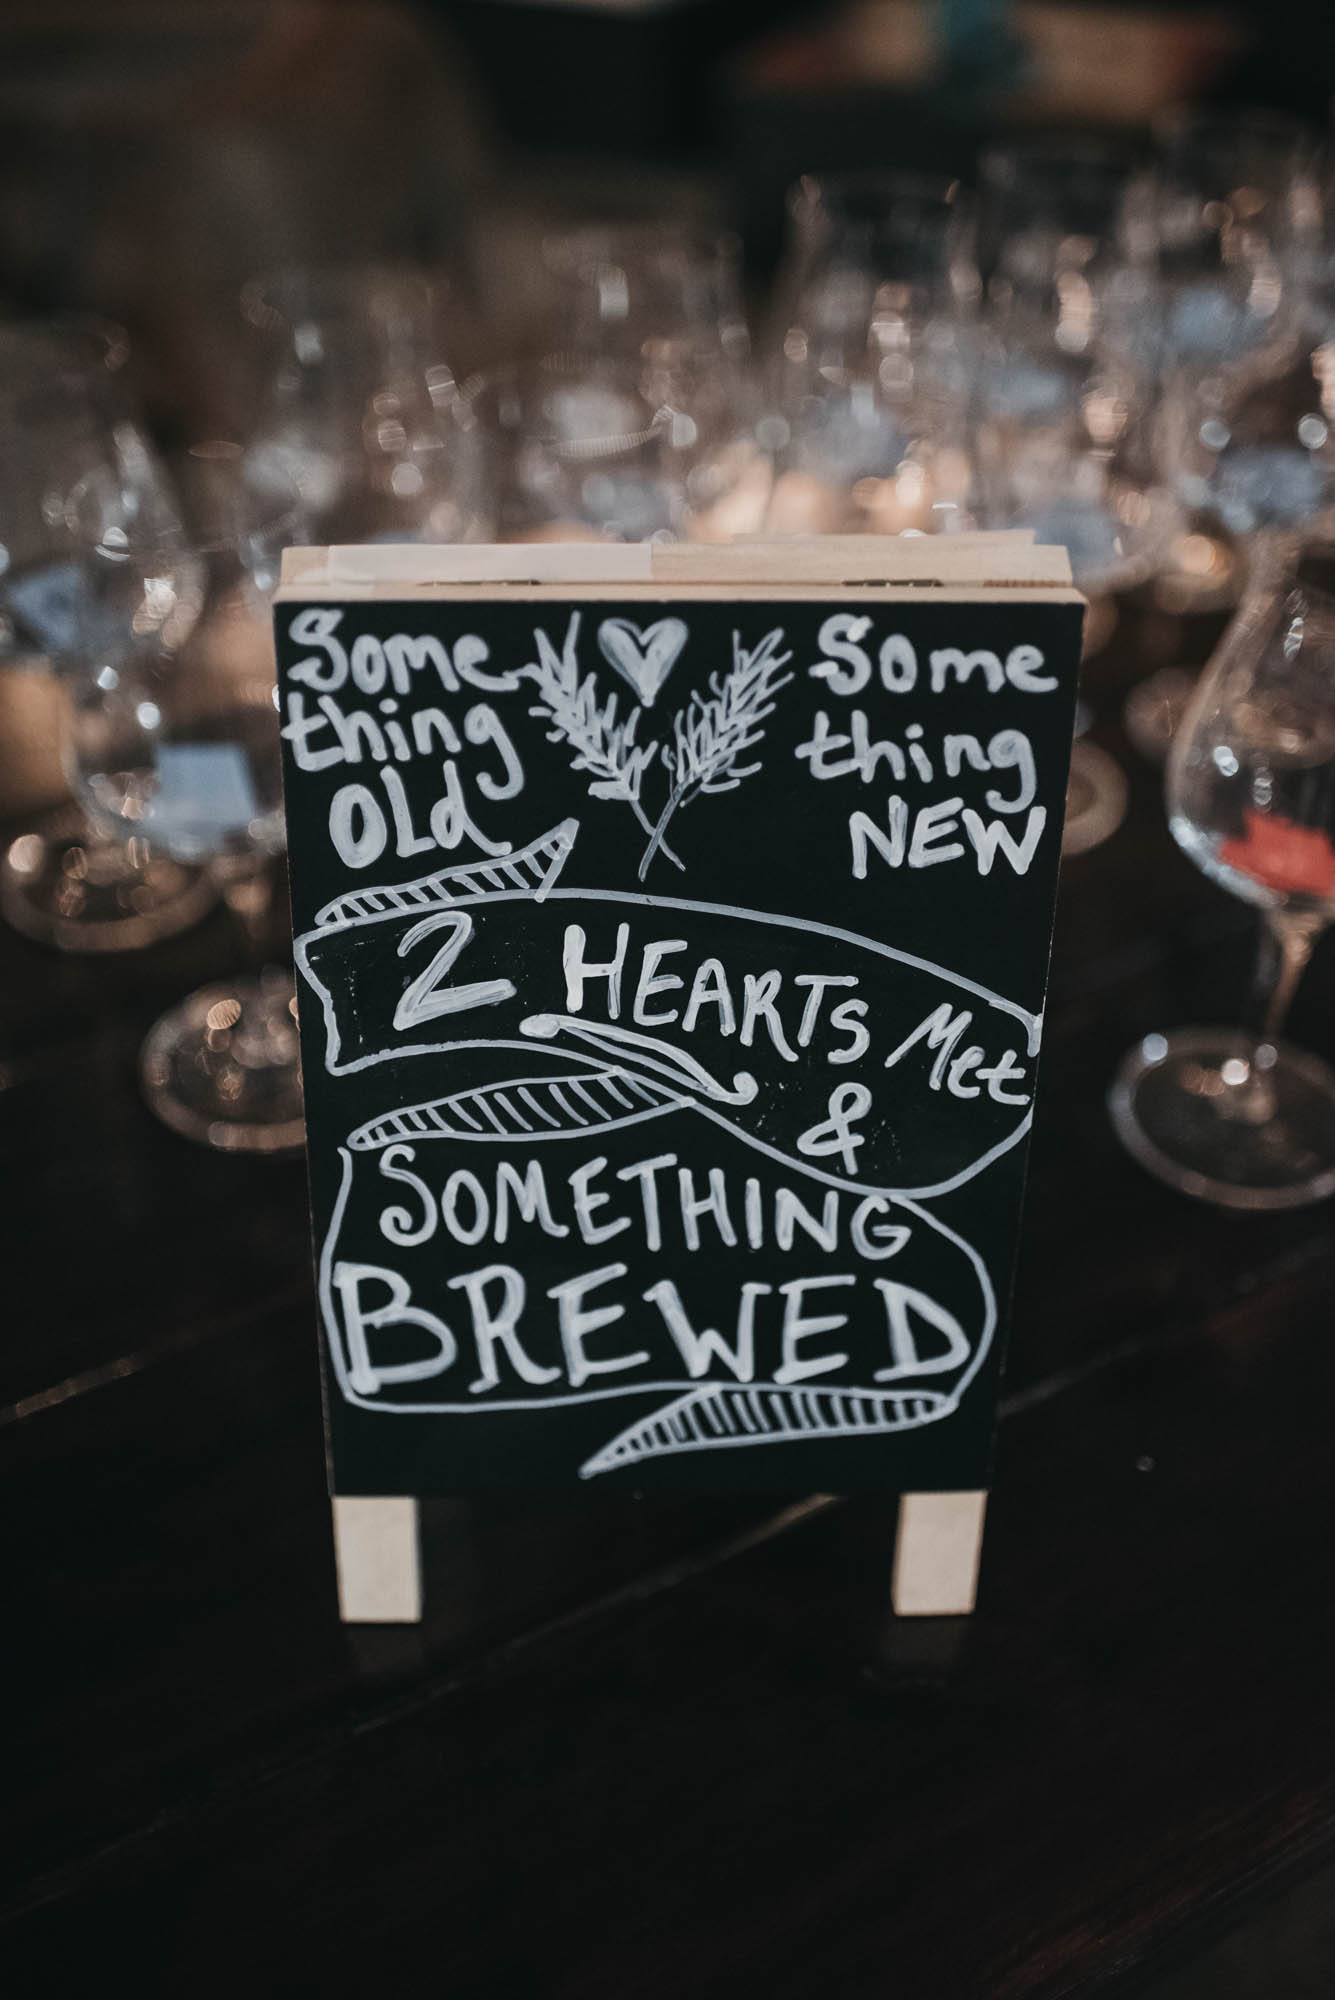 Some
thing
OLd
Some
thing
NEW
2 HEARTS Met
&
SOMETHING
BREWED